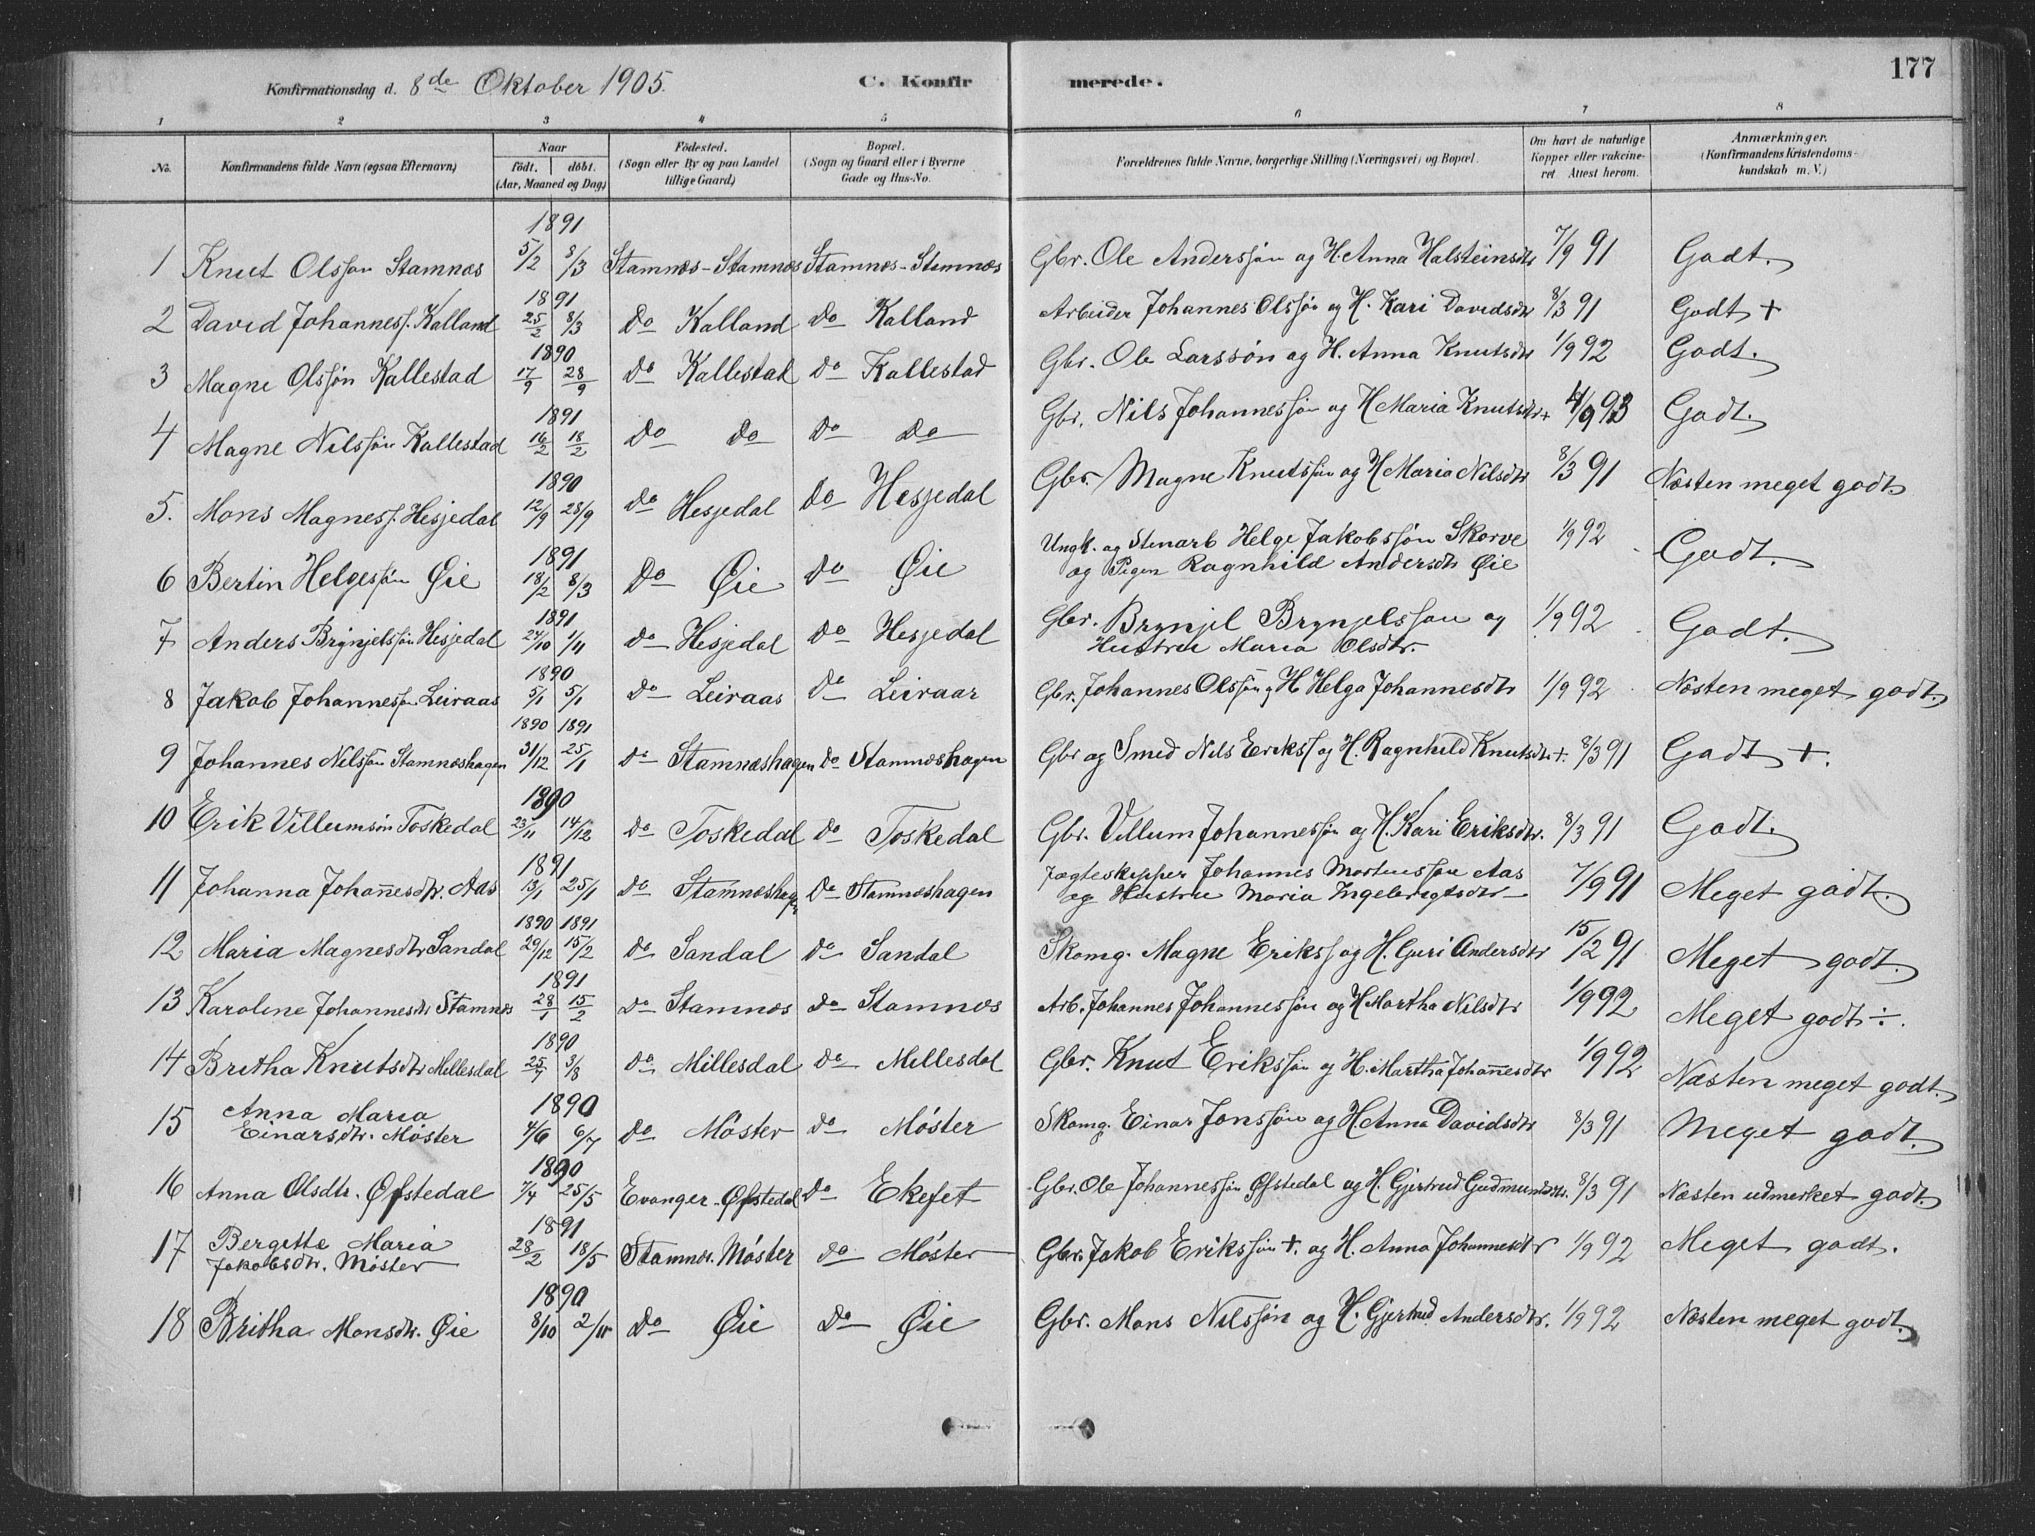 Konfirmationsdag d. 8de Oktober 1905.
C. Konfirmerede.
177
1 2 3 4 5 6 7 8
No. Konfirmandens fulde Navn (ogsaa Efternavn) Naar født. døbt. (Aar, Maaned og Dag) Födested. (Sogn eller By og paa Landet tillige Gaard) Bopæl. (Sogn og Gaard eller i Byerne Gade og Hus-No. Forældrenes fulde Navne, borgerlige Stilling (Næringsvei) og Bopæl. Om havt de naturlige Kopper eller vakcineret Attest herom. Anmærkninger. (Konfirmandens Kristendomskundskab m. V.)
1891
1 Knut Olsson Stamnæs 5/2 8/3 Stamnæs-Stamnæs Stamnæs-Stamnæs Gbr. Ole Anderssøn og H. Anna Halsteinsdtr 7/9 91 Godt.
1891
2 David Johanness. Kalland 25/2 8/3 Do Kalland Do Kalland Arbeider Johannes Olssøn og H. Kari Davidsdtr 8/3 91 Godt +
1890
3 Magne Olssøn Kallestad 17/9 28/9 Do Kallestad Do Kallestad Gbr. Ole Larssøn og H. Anna Knutsdtr 1/9 92 Godt.
1891
4 Magne Nilssøn Kallestad 16/2 18/2 Do Do Do Do Gbr. Nils Johannessøn og H Maria Knutsdtr + 4/9 93 Godt.
1890
5. Mons Magness. Hesjedal 12/9 28/9 Do Hesjedal Do Hesjedal Gbr. Magne Knutssøn og H Maria Nilsdtr 8/3 91 Næsten meget godt.
1891
6 Bertin Helgessøn Øie 18/2 8/3 Do Øie Do Øie Ungk. og Stenarb Helge Jakobssøn Skorve
og Pigen Ragnhild Andersdtr Øie 1/9 92 Godt.
1891
7 Anders Brynjelssøn Hesjedal 24/10 1/11 Do Hesjedal Do Hesjedal Gbr. Brynjel Brynjelsson og
Hustru Maria Olsdtr. 1/9 92 Godt.
1890
8 Jakob Johannessøn Leiraas 5/1 5/1 Do Leiraas Do Leiraas Gbr. Johannes Olssøn og H Helga Johannesdtr 1/9 92 Næsten meget godt.
1890 1891
9 Johannes Nilssøn Stamnæshagen 31/12 25/1 Do Stamnæshagen Do Stamnæshagen Gbr og Smed Nils Erikss og H. Ragnhild Knutsdtr +. 8/3 91 Godt +.
1890
10 Erik Villumsøn Toskedal 23/11 14/12 Do Toskedal Do Toskedal Gbr. Villum Johannessøn og H. Kari Eriksdtr. 8/3 91 Godt.
1891
11 Johanna Johannesdtr. Aas 13/1 25/1 Do Stamnæshagen Do Stamnæshagen Jægteskipper Johannes Mortenssøn Aas
og Hustru Maria Ingebregtsdtr 7/9 91 Meget godt.
1890 1891
12 Maria Magnesdtr Sandal 29/12 15/2 Do Sandal Do Sandal Skomg. Magne Erikss og H. Guri Andersdtr 15/2 91 Meget godt.
1891
13 Karoline Johannesdtr Stamnæs 28/1 15/2 Do Stamnæs Do Stamnæs Arb. Johannes Johannessøn og H Martha Nilsdtr 1/9 92 Meget godt ÷.
1890
14 Britha Knutsdtr Millesdal 25/7 3/8 Do Millesdal Do Millesdal Gbr. Knut Erikssøn og H. Martha Johannesdtr 1/9 92 Næsten meget godt.
1890
15 Anna Maria
Einarsdtr. Møster 4/6 6/7 Do Møster Do Møster Skomg. Einar Jonssøn og H Anna Davidsdtr 8/3 91 Meget godt.
1890
16 Anna Olsdtr. Øfstedal 7/4 25/5 Evanger-Øfstedal Do Ekefet Gbr. Ole Johannessøn Øfstedal og H. Gjertrud Gudmundsdtr. 8/3 91 Næsten udmerket godt.
1891
17 Bergitte Maria
Jakobsdtr. Møster 28/2 18/5 Stamnæs. Møster Do Møster Gbr. Jakob Erikssøn +. og H. Anna Johannesdtr 1/9 92 Meget godt.
1890
18 Britha Monsdtr. Øie 8/10 2/11 Do Øie Do Øie Gbr. Mons Nilssøn og H. Gjertrud Andersdtr. 1/9 92 Næsten meget godt.